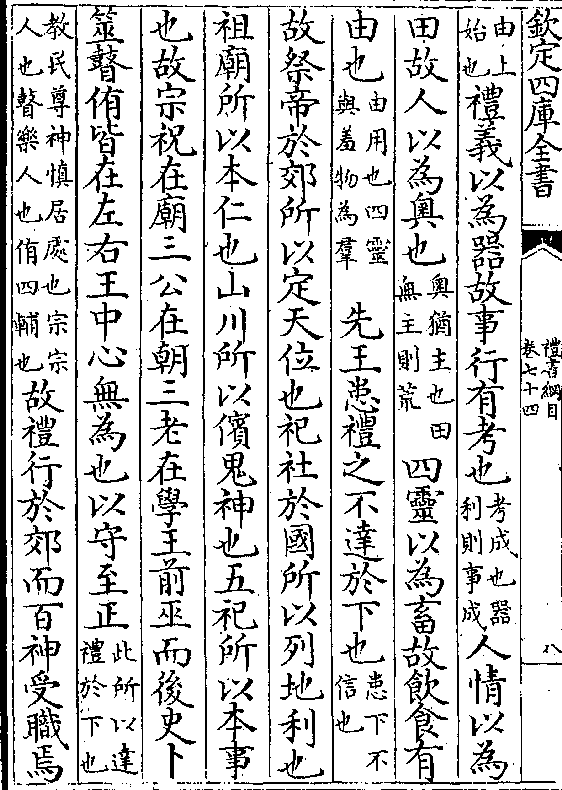 欽定四庫全書
禮書綱目
卷七十四
八
由上始也禮義以為器故事行有考也考成也器利則事成人情以為
田故人以為奧也奧猶主也田無主則荒四靈以為畜故飲食有
由也由用也四靈與羞物為羣先王患禮之不達於下也患下不信也
故祭帝於郊所以定天位也祀社於國所以列地利也
祖廟所以本仁也山川所以儐鬼神也五祀所以本事
也故宗祝在廟三公在朝三老在學王前巫而後史卜
筮瞽侑皆在左右王中心無為也以守至正此所以達禮於下也
教民尊神慎居處也宗宗人也瞽樂人也侑四輔也故禮行於郊而百神受職焉